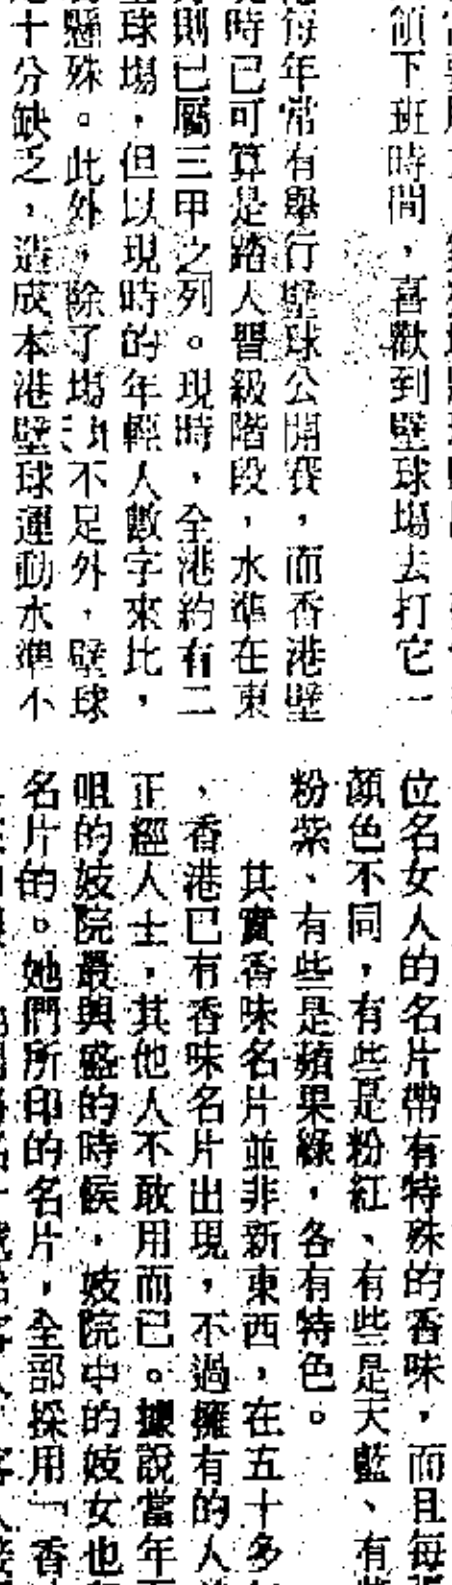 領下班時間，喜歡到壁球場去打它一
每年常有舉行壁球公開賽，而香港壁
時已可算是踏入晉級階段，水準在東
則已屬三甲之列。現時，全港約有二
球場，但以現時的年輕人數字來比，
懸殊。此外，除了場 不足外，壁球
十分缺乏，造成本港壁球運動水準不
位名女人的名片帶有特殊的香味，而且每
顏色不同，有些是粉紅、有些是天藍、有
粉紫、有些是蘋果綠，各有特色。
其實香味名片並非新東西，在五十多
、香港已有香味名片出現，不過擁有的人
正經人士，其他人不敢用而已。據說當年
咀的妓院最興盛的時候，妓院中的妓女也
名片的。她們所印的名片，全部採用「香